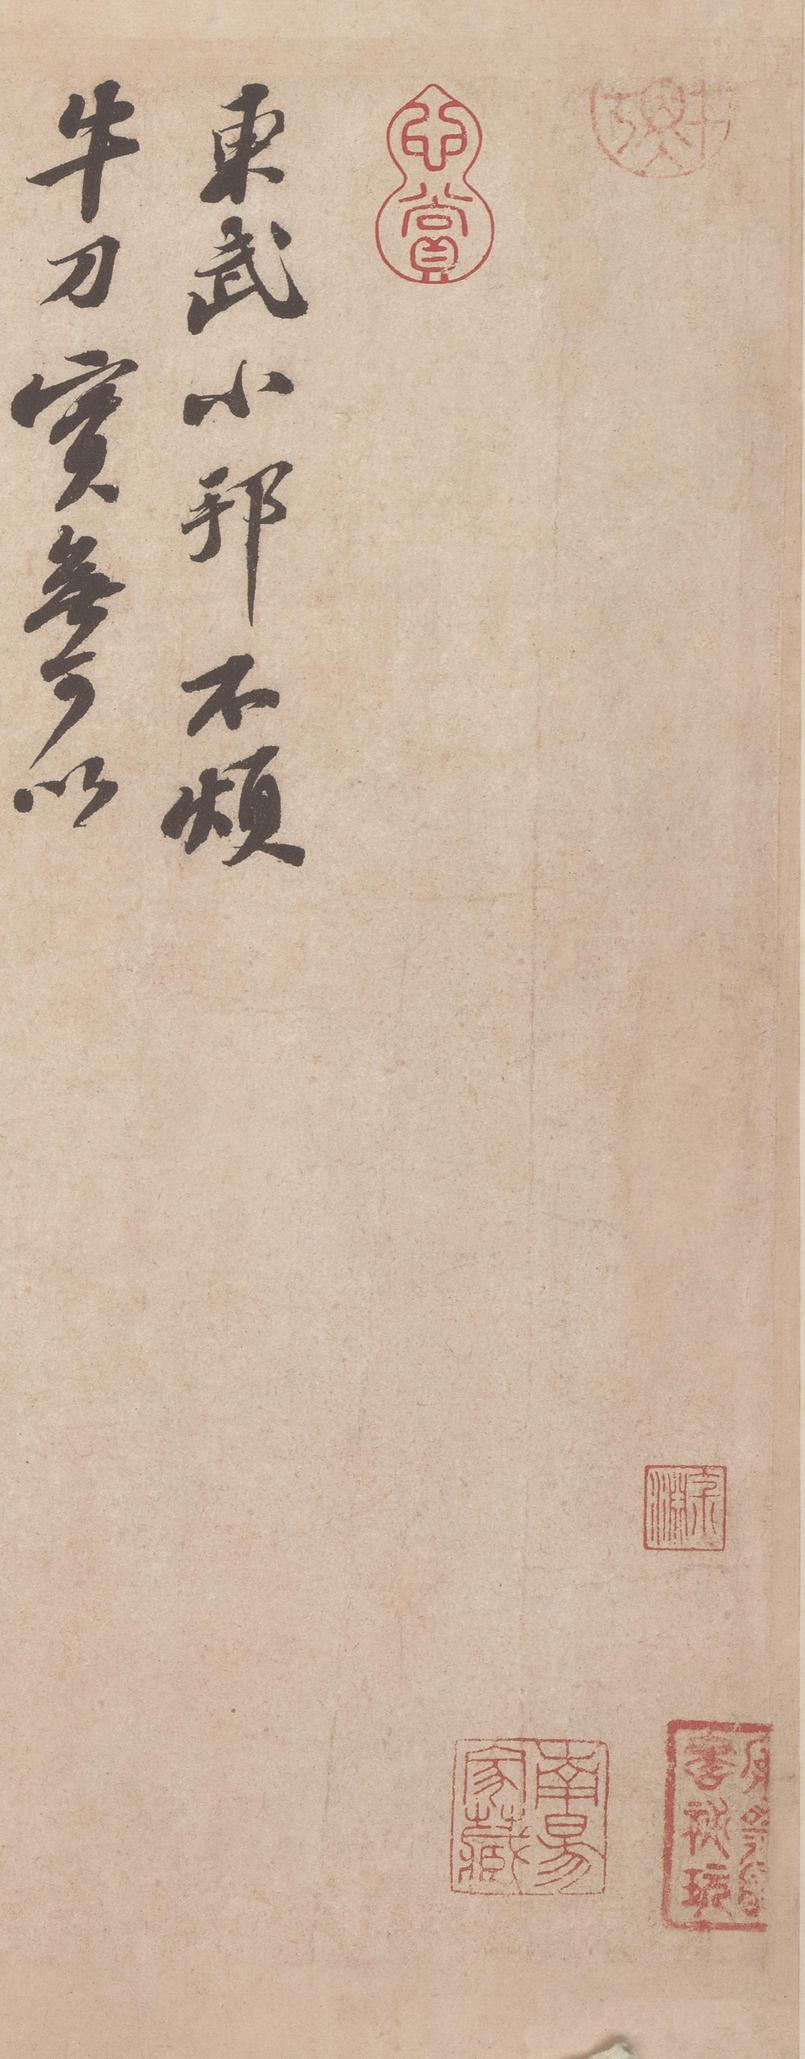 東武小邦不煩
牛刀實無可以
心賞
南昜家藏